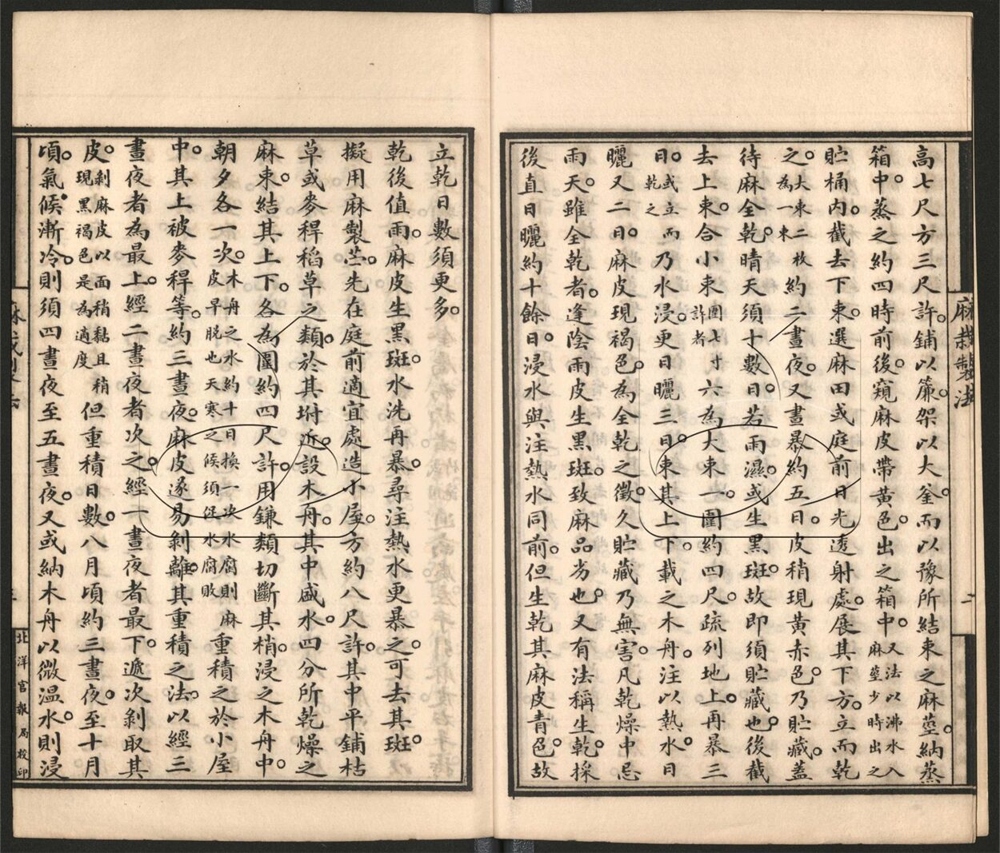 麻栽製法
二
高七尺方三尺許。鋪以簾架以大釜。而以豫所結束之麻莖。納蒸
箱中。蒸之約四時前後。窺麻皮帶黃色。出之箱中。又法以沸水入麻莖少時出之
貯桶內。截去下束。選麻田或庭前日光透射處。展其下方。立而乾
之。大束二枚為一束約二晝夜。又晝暴約五日。皮稍現黃赤色。乃貯藏。蓋
待麻全乾。晴天須十數日。若雨濕。或生黑斑。故即須貯藏也。後截
去上束。合小束圍七寸許者六為大束。一圍約四尺。疏列地上。再暴三
日。或立而乾之乃水浸。更日曬三日。束其上下。載之木舟。注以熱水。日
曬又二日。麻皮現褐色。為全乾之徵。久貯藏乃無害。凡乾燥中忌
雨天。雖全乾者。逢陰雨。皮生黑斑。致麻品劣也。又有法稱生乾。採
後直日曬約十餘日。浸水與注熱水同前。但生乾其麻皮青色。故
立乾日數須更多。
乾後值雨。麻皮生黑斑。水洗再暴。尋注熱水更暴之。可去其斑。
擬用麻製苧。先在庭前適宜處造小屋。方約八尺許。其中平鋪枯
草或麥稈稻草之類。於其坿近。設木舟。其中盛水四分。所乾燥之
麻束。結其上下。各為圍約四尺許。用鎌類切斷其梢。浸之木舟中。
朝夕各一次。木舟之水約十日換一次水腐則麻皮早脫也天寒之候須任水腐敗重積之於小屋
中。其上被麥稈等。約三晝夜。麻皮遂易剝離。其重積之法。以經三
晝夜者為最上。經二晝夜者次之。經一晝夜者最下。遞次剝取其
皮。剝麻皮以面稍黏且稍現黑褐色是為適度但重積日數。八月頃約三晝夜。至十月
頃。氣候漸冷。則須四晝夜至五晝夜。又或納木舟以微溫水。則浸
北洋官報局校印